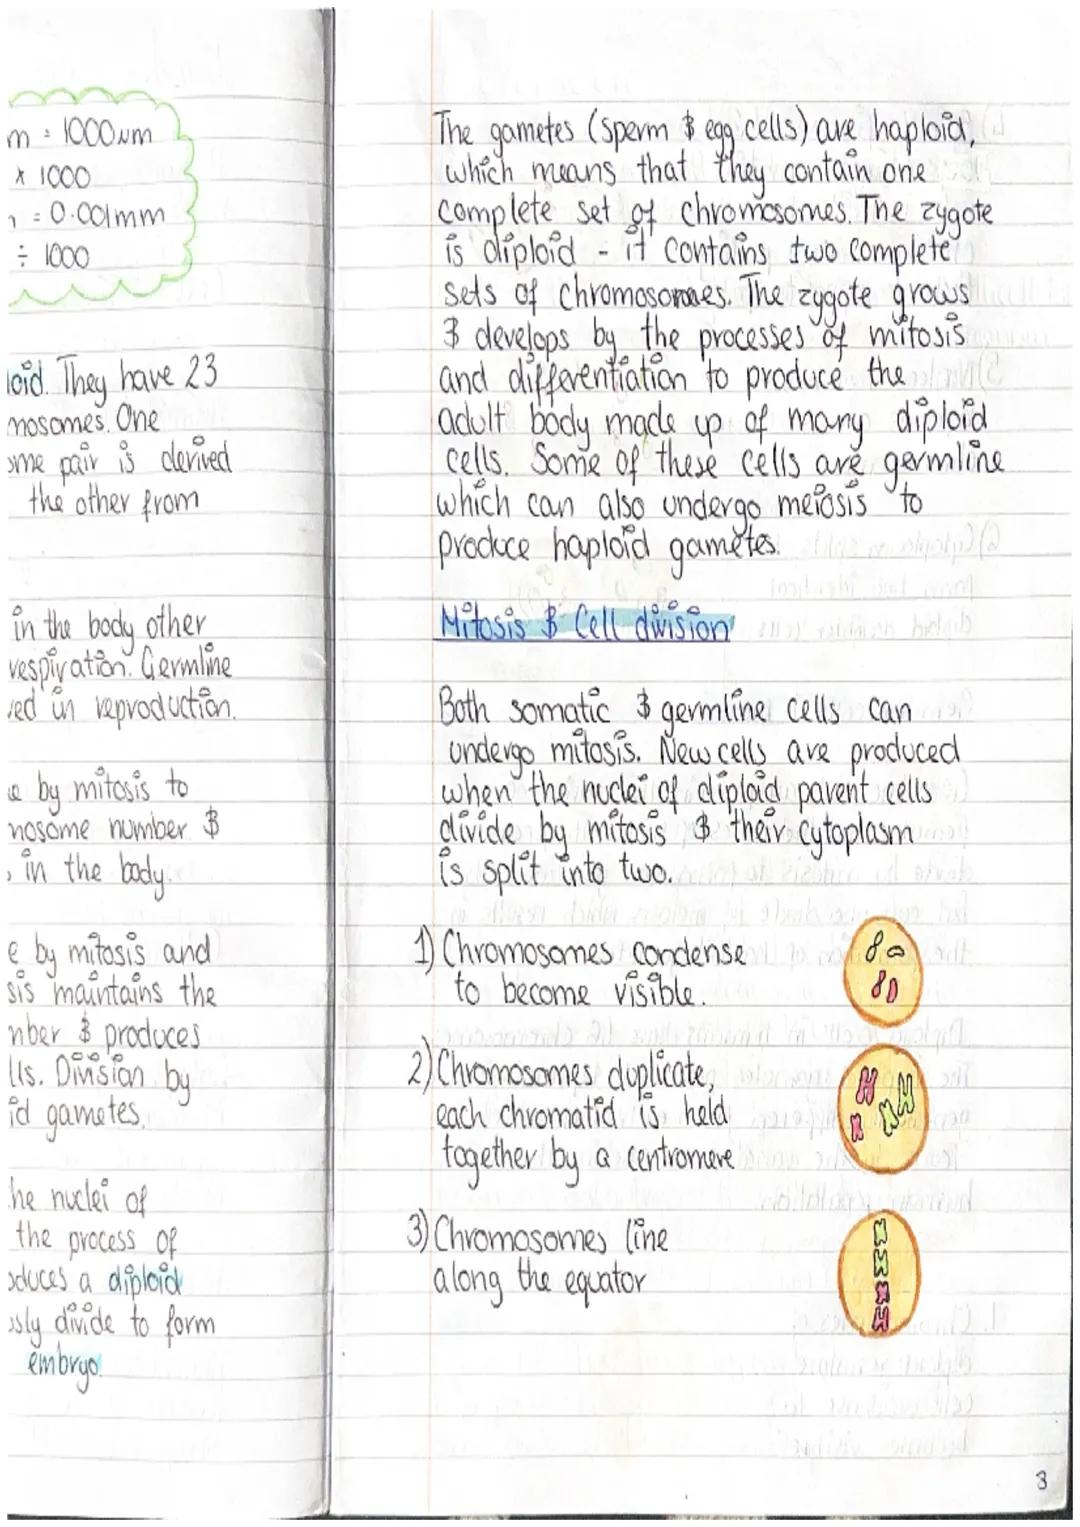 m = 1000μm
x 1000
= 0.001mm
÷ 1000
loid. They have 23
mosomes. One
ome pair is derived
the other from
in the body other
respiration. Germline
ved in reproduction.
e by mitosis to
mosome number $
in the body.
e by mitosis and
sis maintains the
mber $ produces
lls. Division by
id gametes.
he nuclei of
the process of
oduces a diploid
ssly divide to form
embryo.
The gametes (sperm $ egg cells) are haploid,
which means that they contain one
complete set of chromosomes. The zygote
is diploid - it contains two complete
sets of chromosomes. The zygote grows
$ develops by the processes of mitosis
and differentiation to produce the
adult body made up of many diploid
cells. Some of these cells are germline
which can also undergo meiosis to
produce haploid gametes.
Mitosis $ Cell division
Both somatic $ germline cells can
undergo mitosis. New cells are produced
when the nuclei of diploid parent cells
divide by mitosis $ their cytoplasm
is split into two.
1) Chromosomes condense
to become visible.
2) Chromosomes duplicate,
each chromatid is held
together by a centromere
3) Chromosomes line
along the equator
3